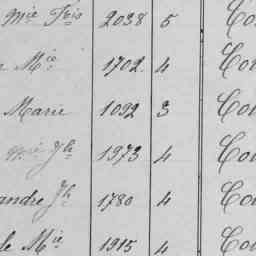 Mie Fois 2038 5 Co
Mie 1702 4 Co
Marie 1092 3 Co
Mie Jh 1973 4 Co
andre Jh 1780 4 Co
le Mie 1915 4 Co